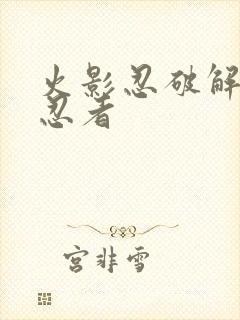 火影忍破解
忍者
宫非雪